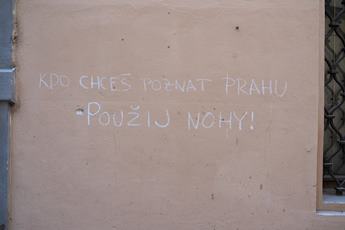 KDO CHCEŠ POZNAT PRAHU
-POUŽIJ NOHY!